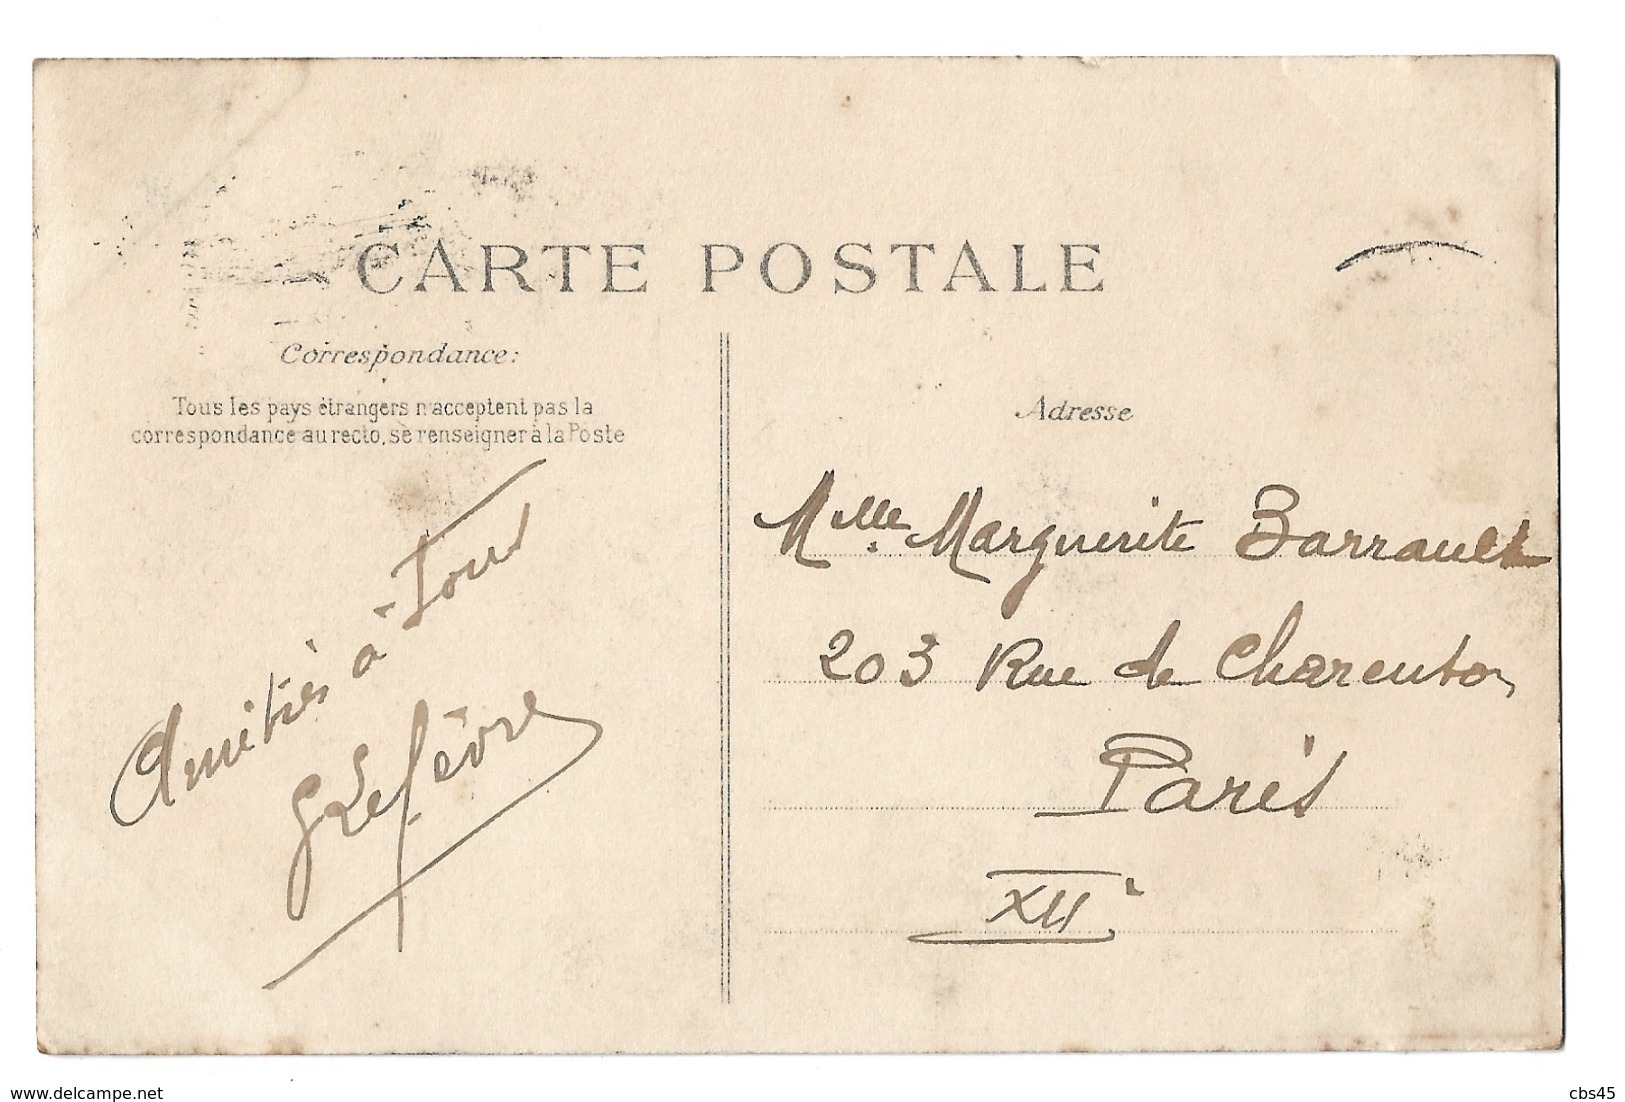 CARTE POSTALE
Correspondance:
Tous les pays étrangers n'acceptent pas la
correspondance au recto, se renseigner à la Poste
Amitiés à Tous
G Lefèvre
Adresse
Mlle Marguerite Barrault
203 Rue de Charenton
Paris
XIIe
www.delcampe.net
cbs45